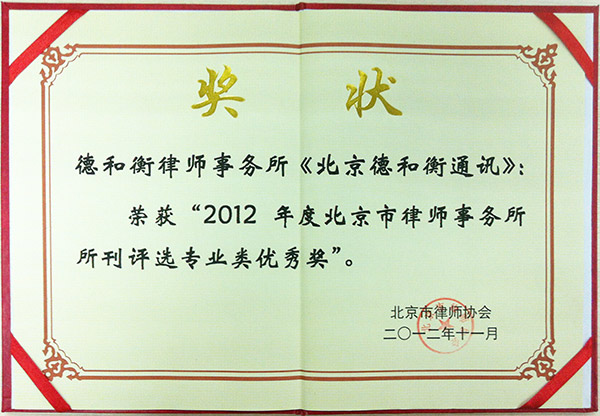 奖 状
德和衡律师事务所《北京德和衡通讯》：
荣获“2012 年度北京市律师事务所
所刊评选专业类优秀奖”。
北京市律师协会
二〇一二年十一月